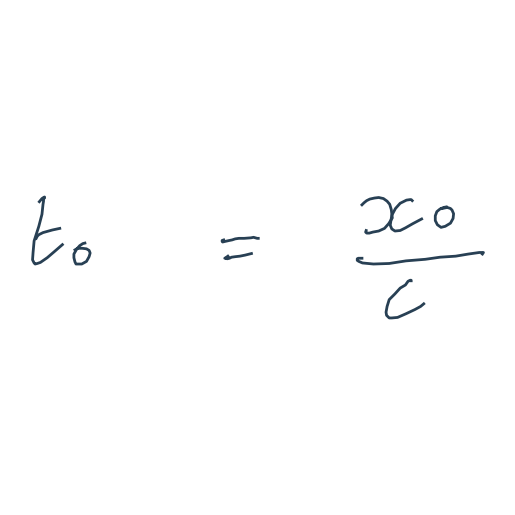 t₀ = x₀/c